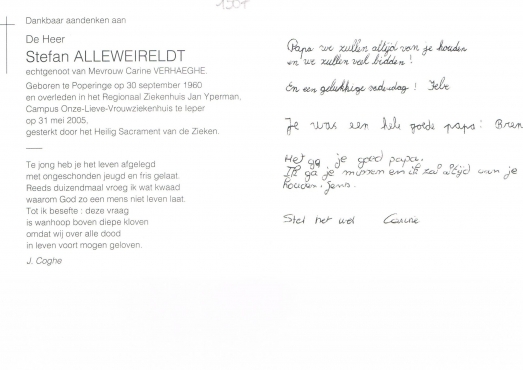 1507
Dankbaar aandenken aan
De Heer
Stefan ALLEWEIRELDT
echtgenoot van Mevrouw Carine VERHAEGHE.
Geboren te Poperinge op 30 september 1960
en overleden in het Regionaal Ziekenhuis Jan Yperman,
Campus Onze-Lieve-Vrouwziekenhuis te Ieper
op 31 mei 2005,
gesterkt door het Heilig Sacrament van de Zieken.
Te jong heb je het leven afgelegd
met ongeschonden jeugd en fris gelaat.
Reeds duizendmaal vroeg ik wat kwaad
waarom God zo een mens niet leven laat.
Tot ik besefte : deze vraag
is wanhoop boven diepe kloven
omdat wij over alle dood
in leven voort mogen geloven.
J. Coghe
Papa we zullen altijd van je houden
en we zullen veel bidden!
En een gelukkige vaderdag!
Je was een hele goede papa! Bren
Het ga je goed papa.
Ik ga je missen en ik zal altijd van je
houden. Jens.
Stel het wel Carine